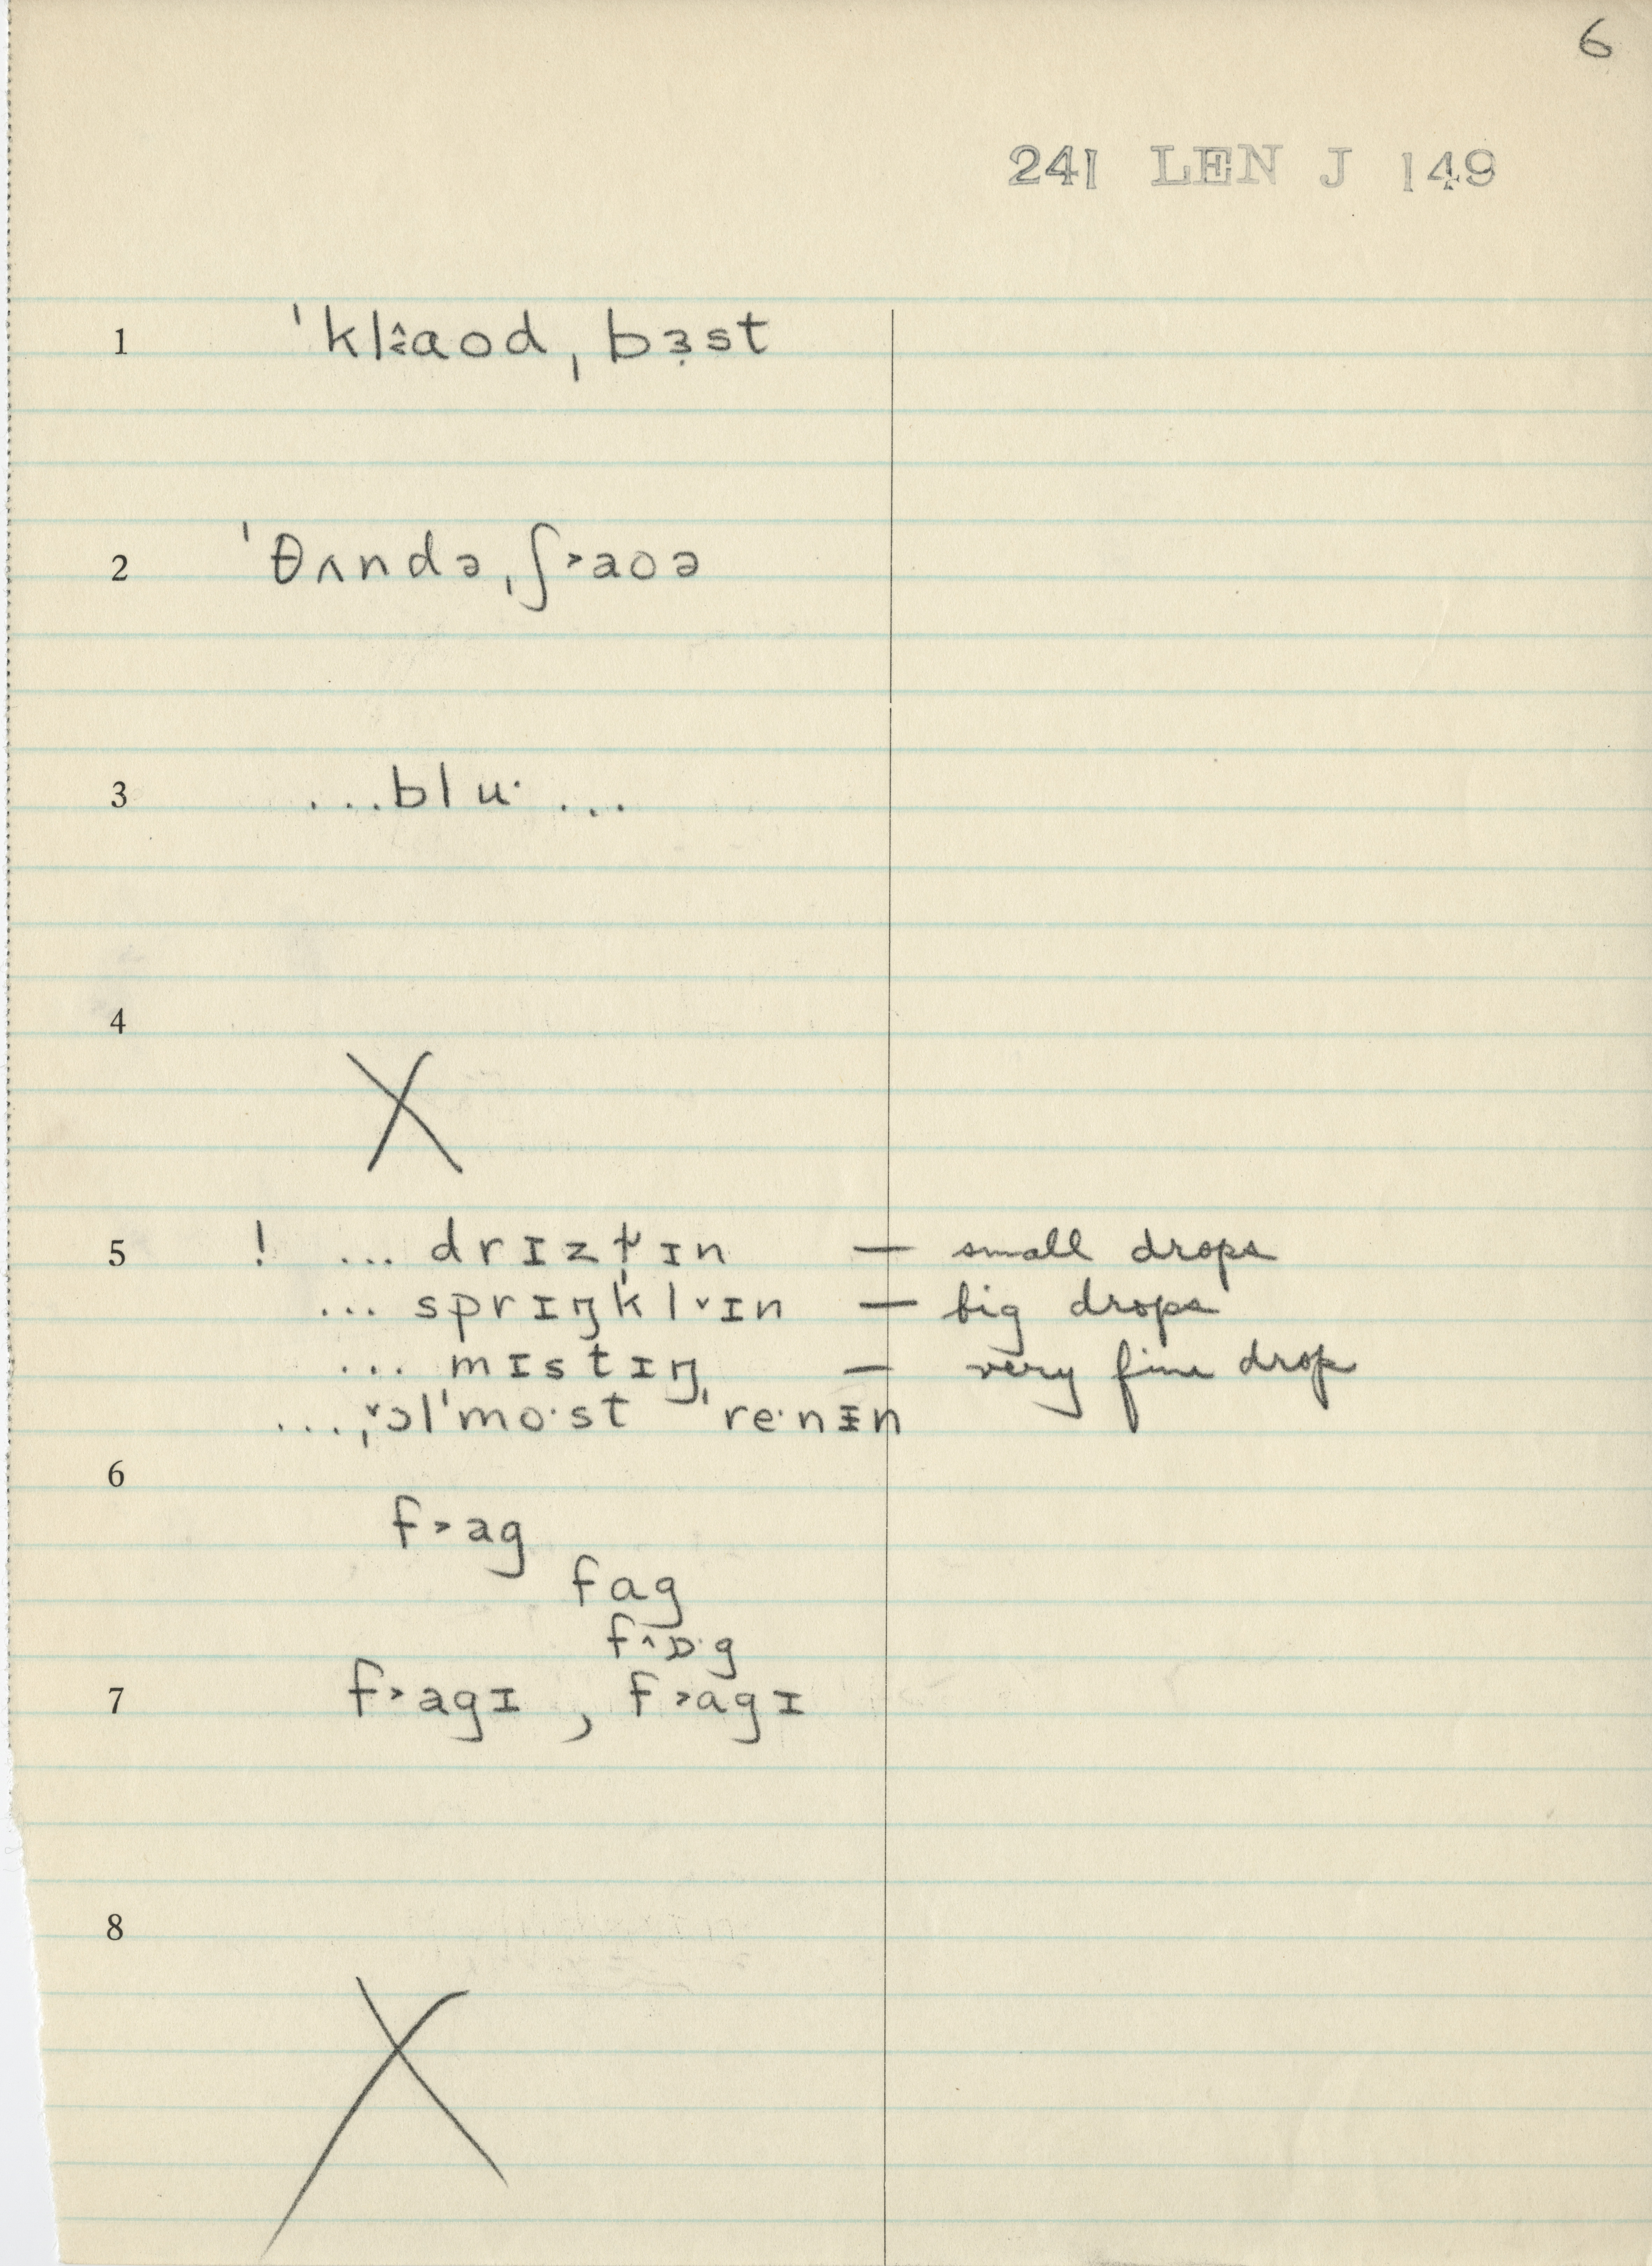 6
241 LEN J 149
1 ˈkl˰aod ˌbɜ̣st
2 ˈθʌndə ˌʃ˃aoə
3 ...blu· ...
4 X
5 ! ... drɪzɫɪn — small drops
... sprɪŋkl˅ɪn — big drops
... mɪstɪŋ — very fine drop
... ˌ˅ɔlˈmo·st ˈre·nɪn
6
f˃ag
fag
f˄ɒ·g
7 f˃agɪ , f˃ɑgɪ
8 X